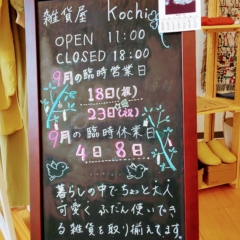 雑貨屋 Kochi
OPEN 11:00
CLOSED 18:00
9月の臨時営業日
18日(祝)
23日(祝)
9月の臨時休業日
4日 8日
暮らしの中でちょっと大人
可愛く ふだん使いでき
る雑貨を取り揃えてます。